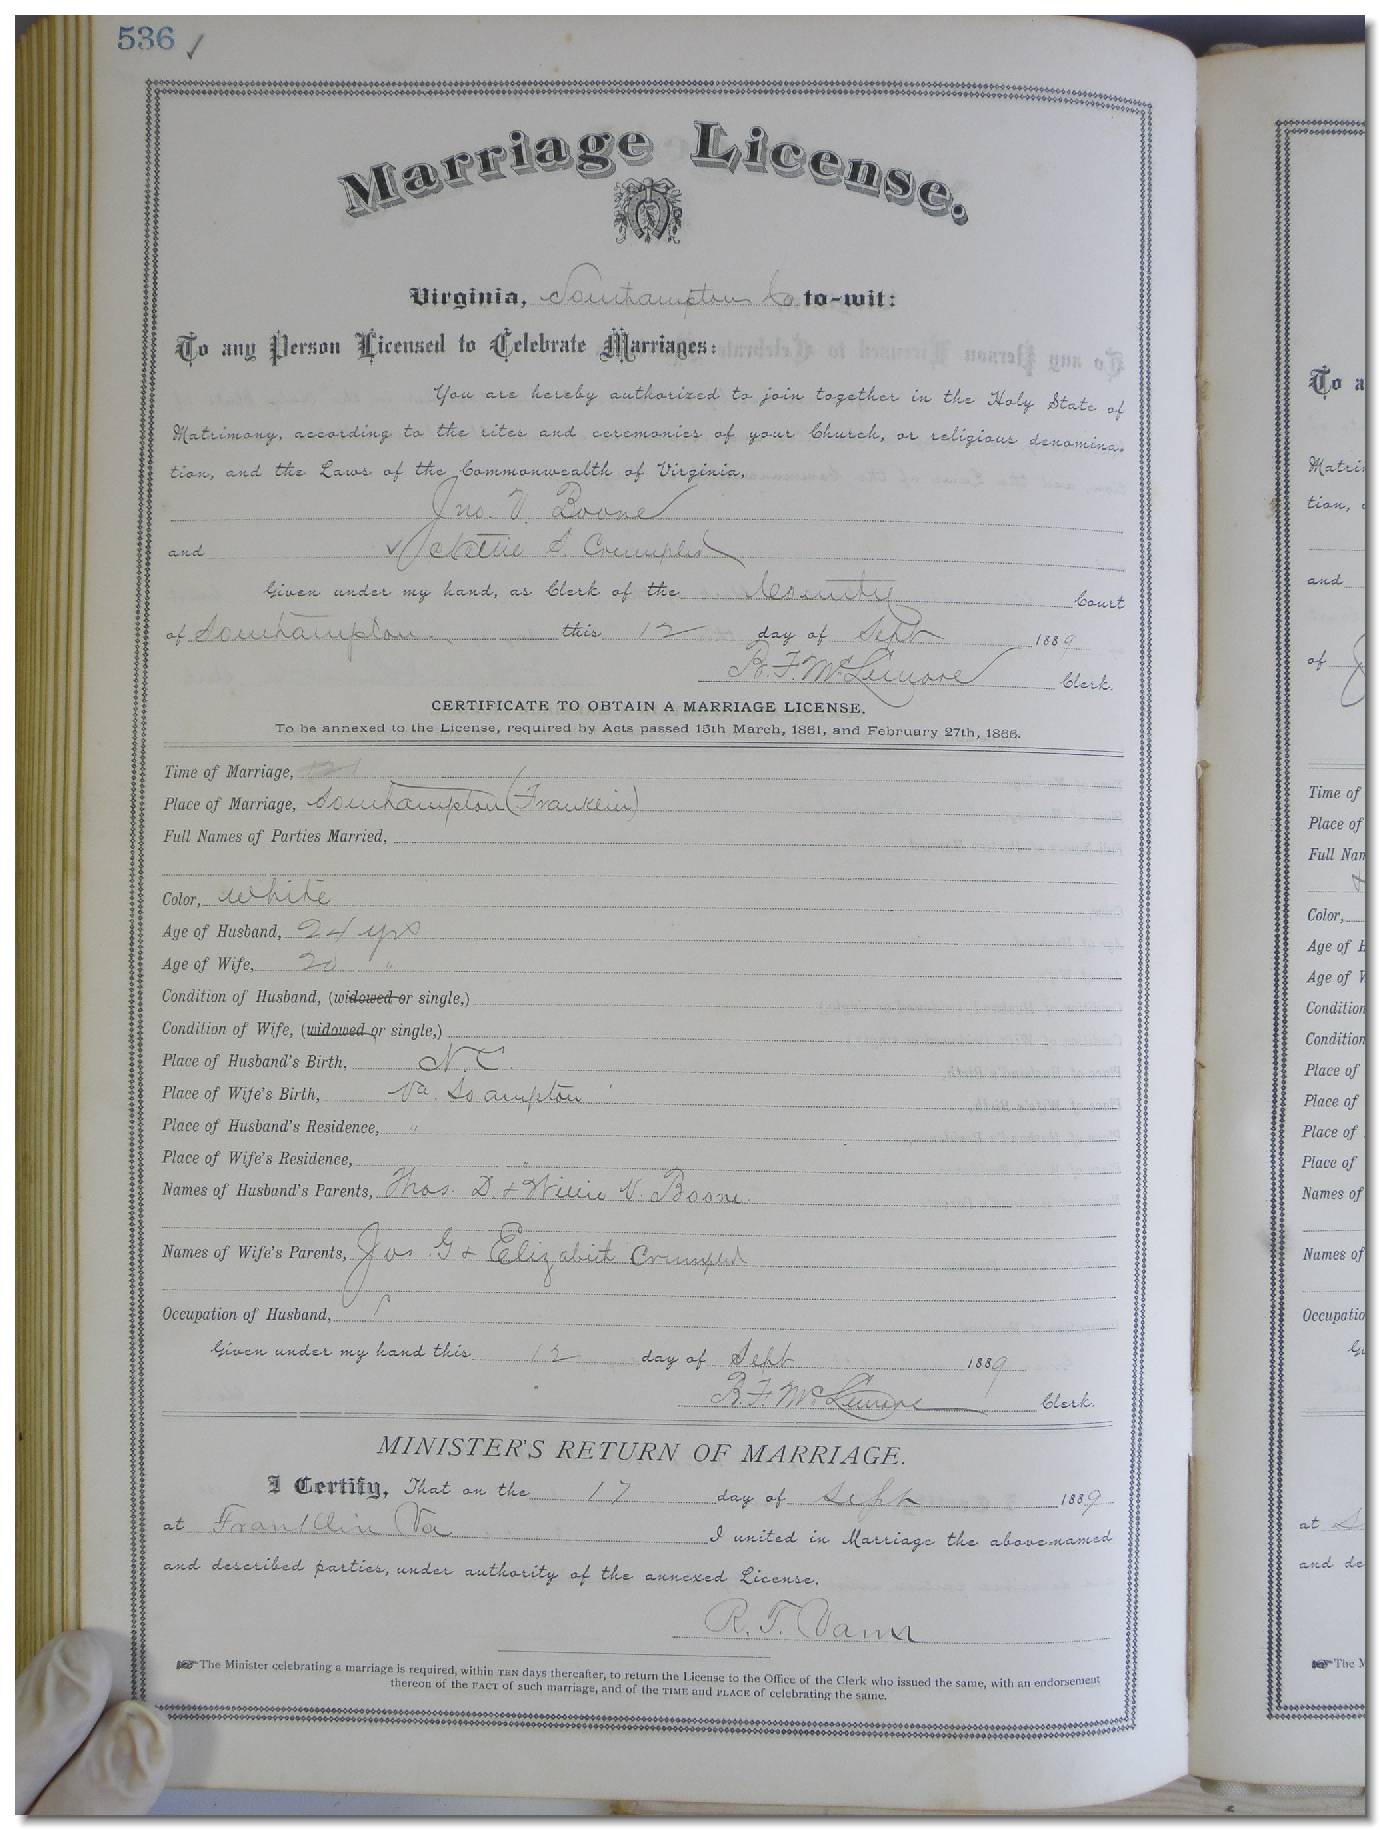 536 ✓
Marriage License.
Virginia, Southampton Co to-wit:
To any Person Licensed to Celebrate Marriages:
You are hereby authorized to join together in the Holy State of
Matrimony, according to the rites and ceremonies of your Church, or religious denomina-
tion, and the Laws of the Commonwealth of Virginia,
Jno. V. Boone
and ✓ Nettie S. Crumpler
Given under my hand, as Clerk of the County Court
of Southampton this 12 day of Sept 1889
B. F. McLemore Clerk.
CERTIFICATE TO OBTAIN A MARRIAGE LICENSE.
To be annexed to the License, required by Acts passed 15th March, 1861, and February 27th, 1866.
Time of Marriage,
Place of Marriage, Southampton (Franklin)
Full Names of Parties Married,
Color, White
Age of Husband, 24 yrs
Age of Wife, 20 "
Condition of Husband, (widowed or single,)
Condition of Wife, (widowed or single,)
Place of Husband's Birth, N. C.
Place of Wife's Birth, Va. Soampton
Place of Husband's Residence, "
Place of Wife's Residence, "
Names of Husband's Parents, Thos. D. & Willie V. Boone
Names of Wife's Parents, Jos. G & Elizabeth Crumpler
Occupation of Husband,
Given under my hand this 12 day of Sept 1889
B. F. McLemore Clerk.
MINISTER'S RETURN OF MARRIAGE.
I Certify, That on the 17 day of Sept 1889
at Franklin Va I united in Marriage the above-named
and described parties, under authority of the annexed License.
R. T. Vann
☞ The Minister celebrating a marriage is required, within TEN days thereafter, to return the License to the Office of the Clerk who issued the same, with an endorsement
thereon of the FACT of such marriage, and of the TIME and PLACE of celebrating the same.
To a
Matri
tion,
and
of
Time of
Place of
Full Nam
Color,
Age of H
Age of W
Condition
Condition
Place of
Place of
Place of
Place of
Names of
Names of
Occupatio
at
and de
☞ The M